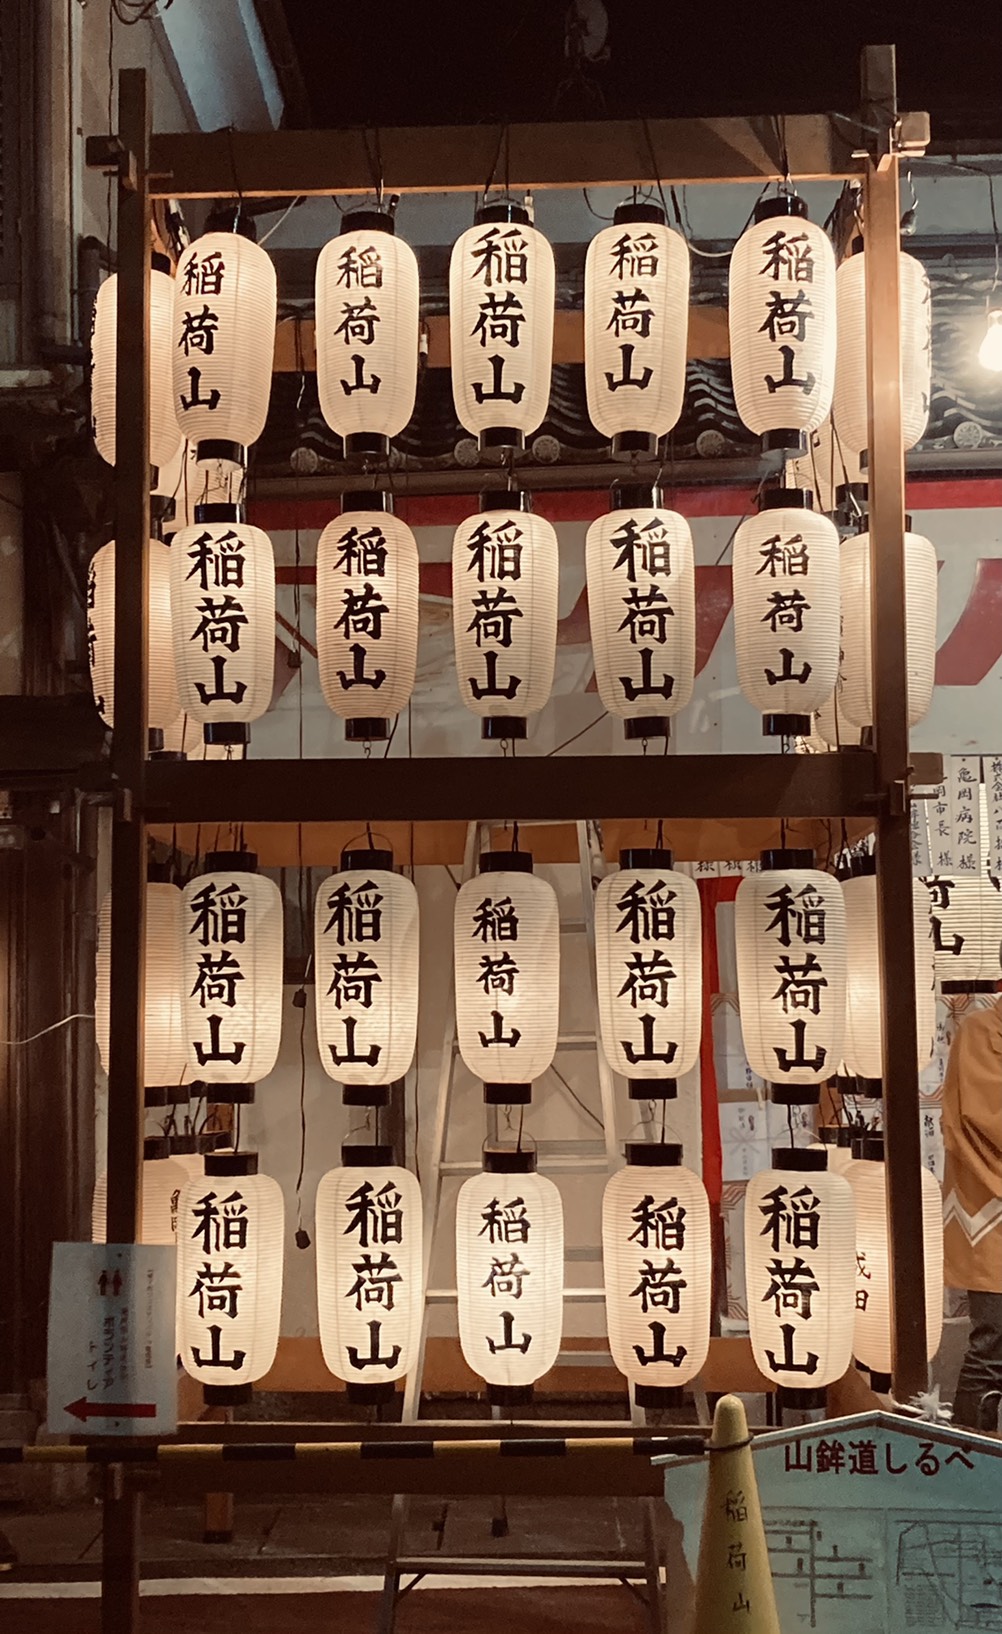 稲荷山
稲荷山
稲荷山
稲荷山
稲荷山
稲荷山
稲荷山
稲荷山
稲荷山
稲荷山
亀岡病院 様
市長 様
稲荷山
稲荷山
稲荷山
稲荷山
稲荷山
稲荷山
稲荷山
稲荷山
稲荷山
稲荷山
ボランティア
トイレ
山鉾道しるべ
稲荷山